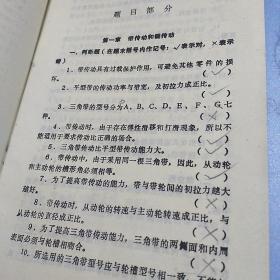 题目部分
第一章 带传动和链传动
一、判断题(在题末括号内作记号:√表示对,×表示
错)
1、带传动具有过载保护作用,可避免其他零件的损
坏。 (√)
2、平型带的传动功率与带宽,及初拉力成正比。
(√)
3、三角带的型号分为A、B、C、D、E、F、G七
种。 (×)
4、带传动时,由于存在弹性滑移和打滑现象,所以不
能适用于要求传动比正确的场合。 (√)
5、三角带传动比平型带传动能力大。 (√)
6、带传动中,由于采用同一根三角带,因此,从动轮
和主动轮的槽形角必须相等。 (×)
7、为了提高带传动的能力,带与带轮间的初拉力越大
越好。 (×)
8、带传动时,从动轮的转速与主动轮转速成正比,与
从动轮的直径成正比。 (×)
9、为了提高三角带传动能力,三角带的两侧面和内周
表面必须与轮槽相吻合。 (×)
10、所选用的三角带型号应与轮槽型号相一致,不